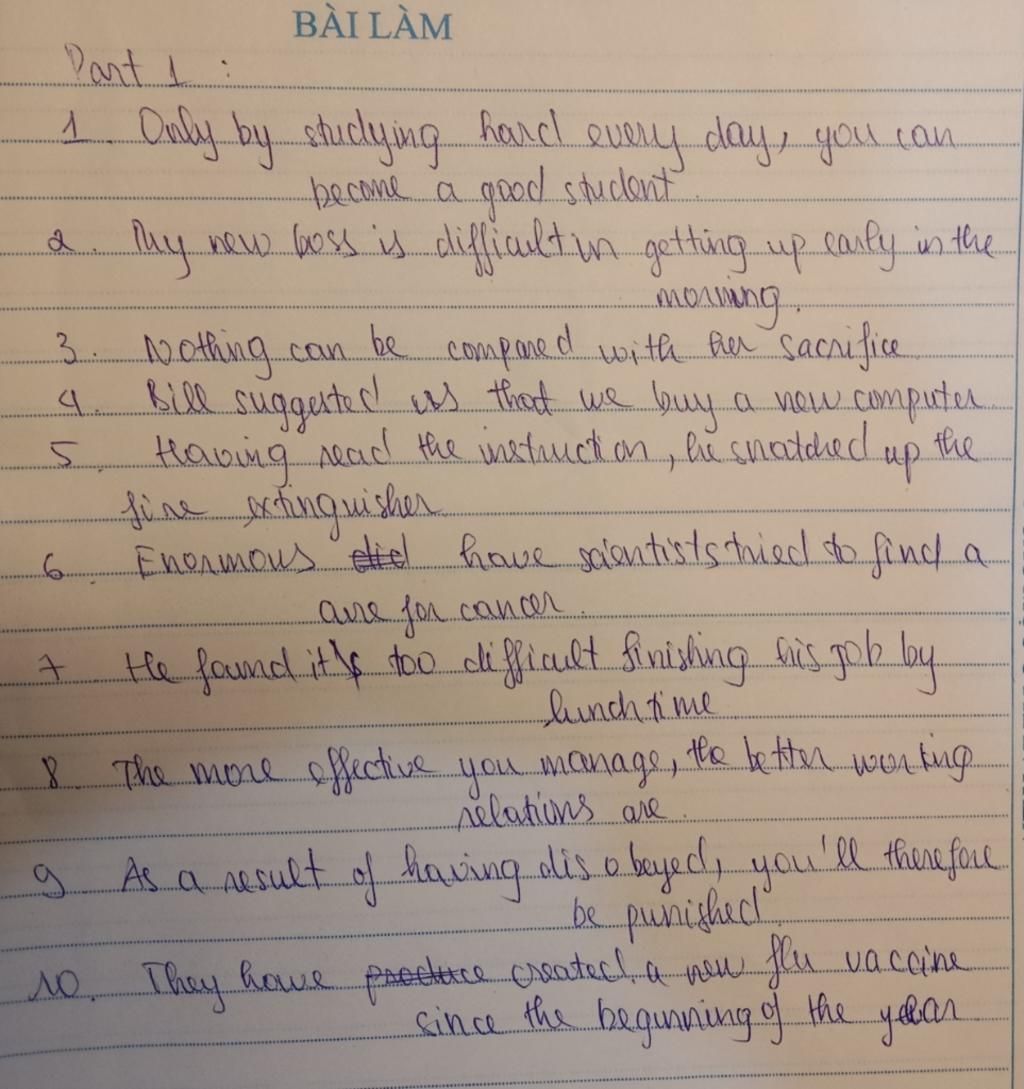 BÀI LÀM
Part 1 :
1. Only by studying hard every day, you can
become a good student.
2. My new boss is difficult in getting up early in the
morning.
3. Nothing can be compared with her sacrifice
4. Bill suggested us that we buy a new computer
5. Having read the instruction, he snatched up the
fire extinguisher
6. Enormous did have scientists tried to find a
cure for cancer.
7 He found it's too difficult finishing his job by
lunchtime
8. The more effective you manage, the better working
relations are.
9 As a result of having disobeyed, you'll therefore
be punished
10. They have produce created a new flu vaccine
since the beginning of the year